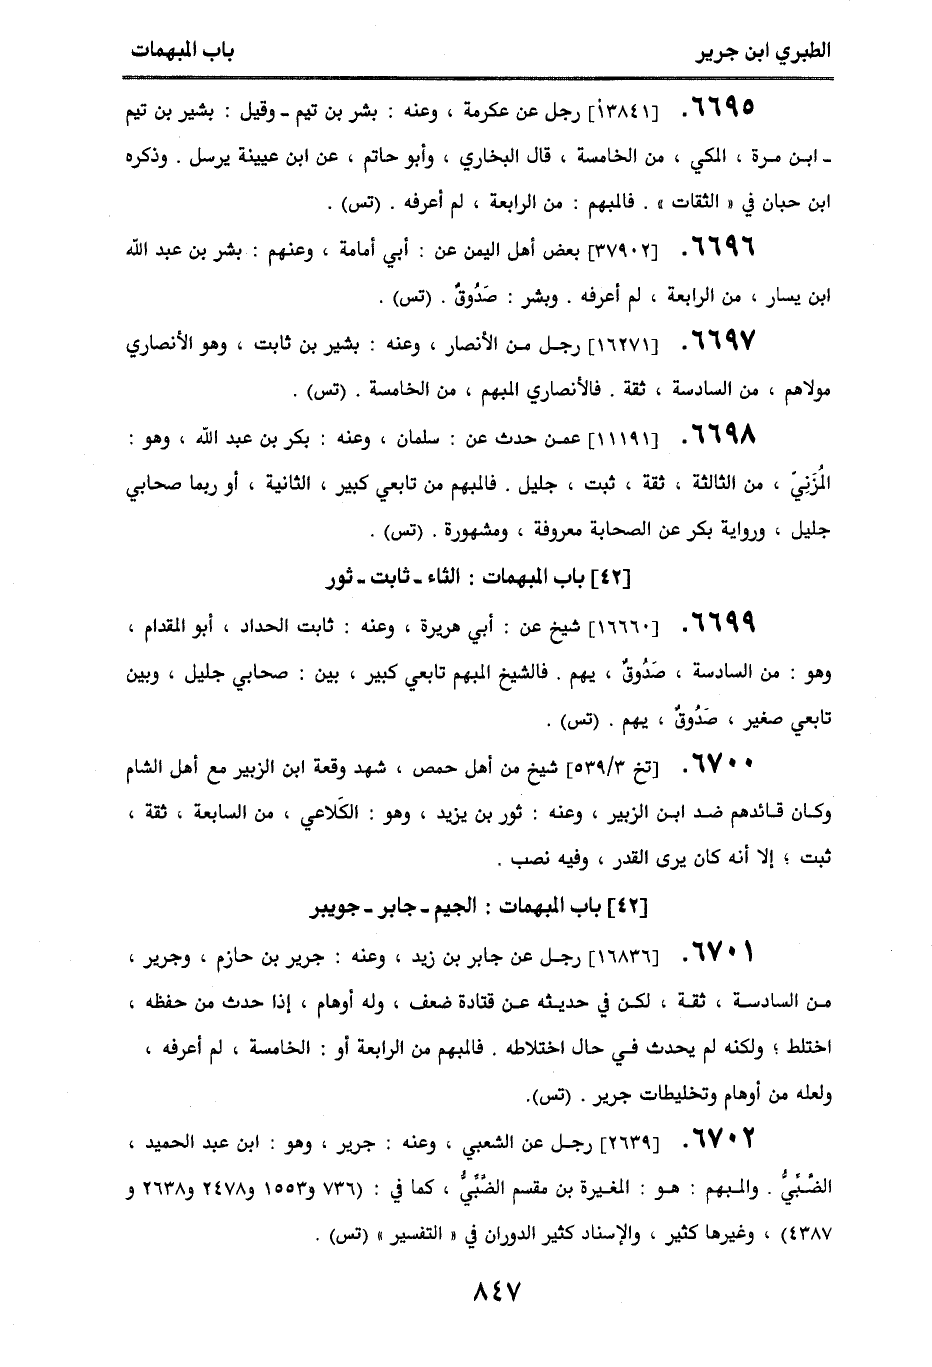 الطبري ابن جرير
باب المبهمات
٦٦٩٥. [١٣٨٤١أ] رجل عن عكرمة ، وعنه : بشر بن تيم ـ وقيل : بشير بن تيم
ـ ابن مرة ، المكي ، من الخامسة ، قال البخاري ، وأبو حاتم ، عن ابن عيينة يرسل . وذكره
ابن حبان في « الثقات » . فالمبهم : من الرابعة ، لم أعرفه . (تس) .
٦٦٩٦. [٣٧٩٠٢] بعض أهل اليمن عن : أبي أمامة ، وعنهم : بشر بن عبد الله
ابن يسار ، من الرابعة ، لم أعرفه . وبشر : صَدُوقٌ . (تس) .
٦٦٩٧. [١٦٢٧١] رجل من الأنصار ، وعنه : بشير بن ثابت ، وهو الأنصاري
مولاهم ، من السادسة ، ثقة . فالأنصاري المبهم ، من الخامسة . (تس) .
٦٦٩٨. [١١١٩١] عمن حدث عن : سلمان ، وعنه : بكر بن عبد الله ، وهو :
المُزَنِيّ ، من الثالثة ، ثقة ، ثبت ، جليل . فالمبهم من تابعي كبير ، الثانية ، أو ربما صحابي
جليل ، ورواية بكر عن الصحابة معروفة ، ومشهورة . (تس) .
[٤٢] باب المبهمات : الثاء ـ ثابت ـ ثور
٦٦٩٩. [١٦٦٦٠] شيخ عن : أبي هريرة ، وعنه : ثابت الحداد ، أبو المقدام ،
وهو : من السادسة ، صَدُوقٌ ، يهم . فالشيخ المبهم تابعي كبير ، بين : صحابي جليل ، وبين
تابعي صغير ، صَدُوقٌ ، يهم . (تس) .
٦٧٠٠. [تخ ٥٣٩/٣] شيخ من أهل حمص ، شهد وقعة ابن الزبير مع أهل الشام
وكان قائدهم ضد ابن الزبير ، وعنه : ثور بن يزيد ، وهو : الكَلاعي ، من السابعة ، ثقة ،
ثبت ؛ إلا أنه كان يرى القدر ، وفيه نصب .
[٤٢] باب المبهمات : الجيم ـ جابر ـ جويبر
٦٧٠١. [١٦٨٣٦] رجل عن جابر بن زيد ، وعنه : جرير بن حازم ، وجرير ،
من السادسة ، ثقة ، لكن في حديثه عن قتادة ضعف ، وله أوهام ، إذا حدث من حفظه ،
اختلط ؛ ولكنه لم يحدث في حال اختلاطه . فالمبهم من الرابعة أو : الخامسة ، لم أعرفه ،
ولعله من أوهام وتخليطات جرير . (تس).
٦٧٠٢. [٢٦٣٩] رجل عن الشعبي ، وعنه : جرير ، وهو : ابن عبد الحميد ،
الضَّبِّيُّ . والمبهم : هو : المغيرة بن مقسم الضَّبِّيُّ ، كما في : (٧٣٦ و١٥٥٣ و٢٤٧٨ و٢٦٣٨ و
٤٣٨٧) ، وغيرها كثير ، والإسناد كثير الدوران في « التفسير » (تس) .
٨٤٧